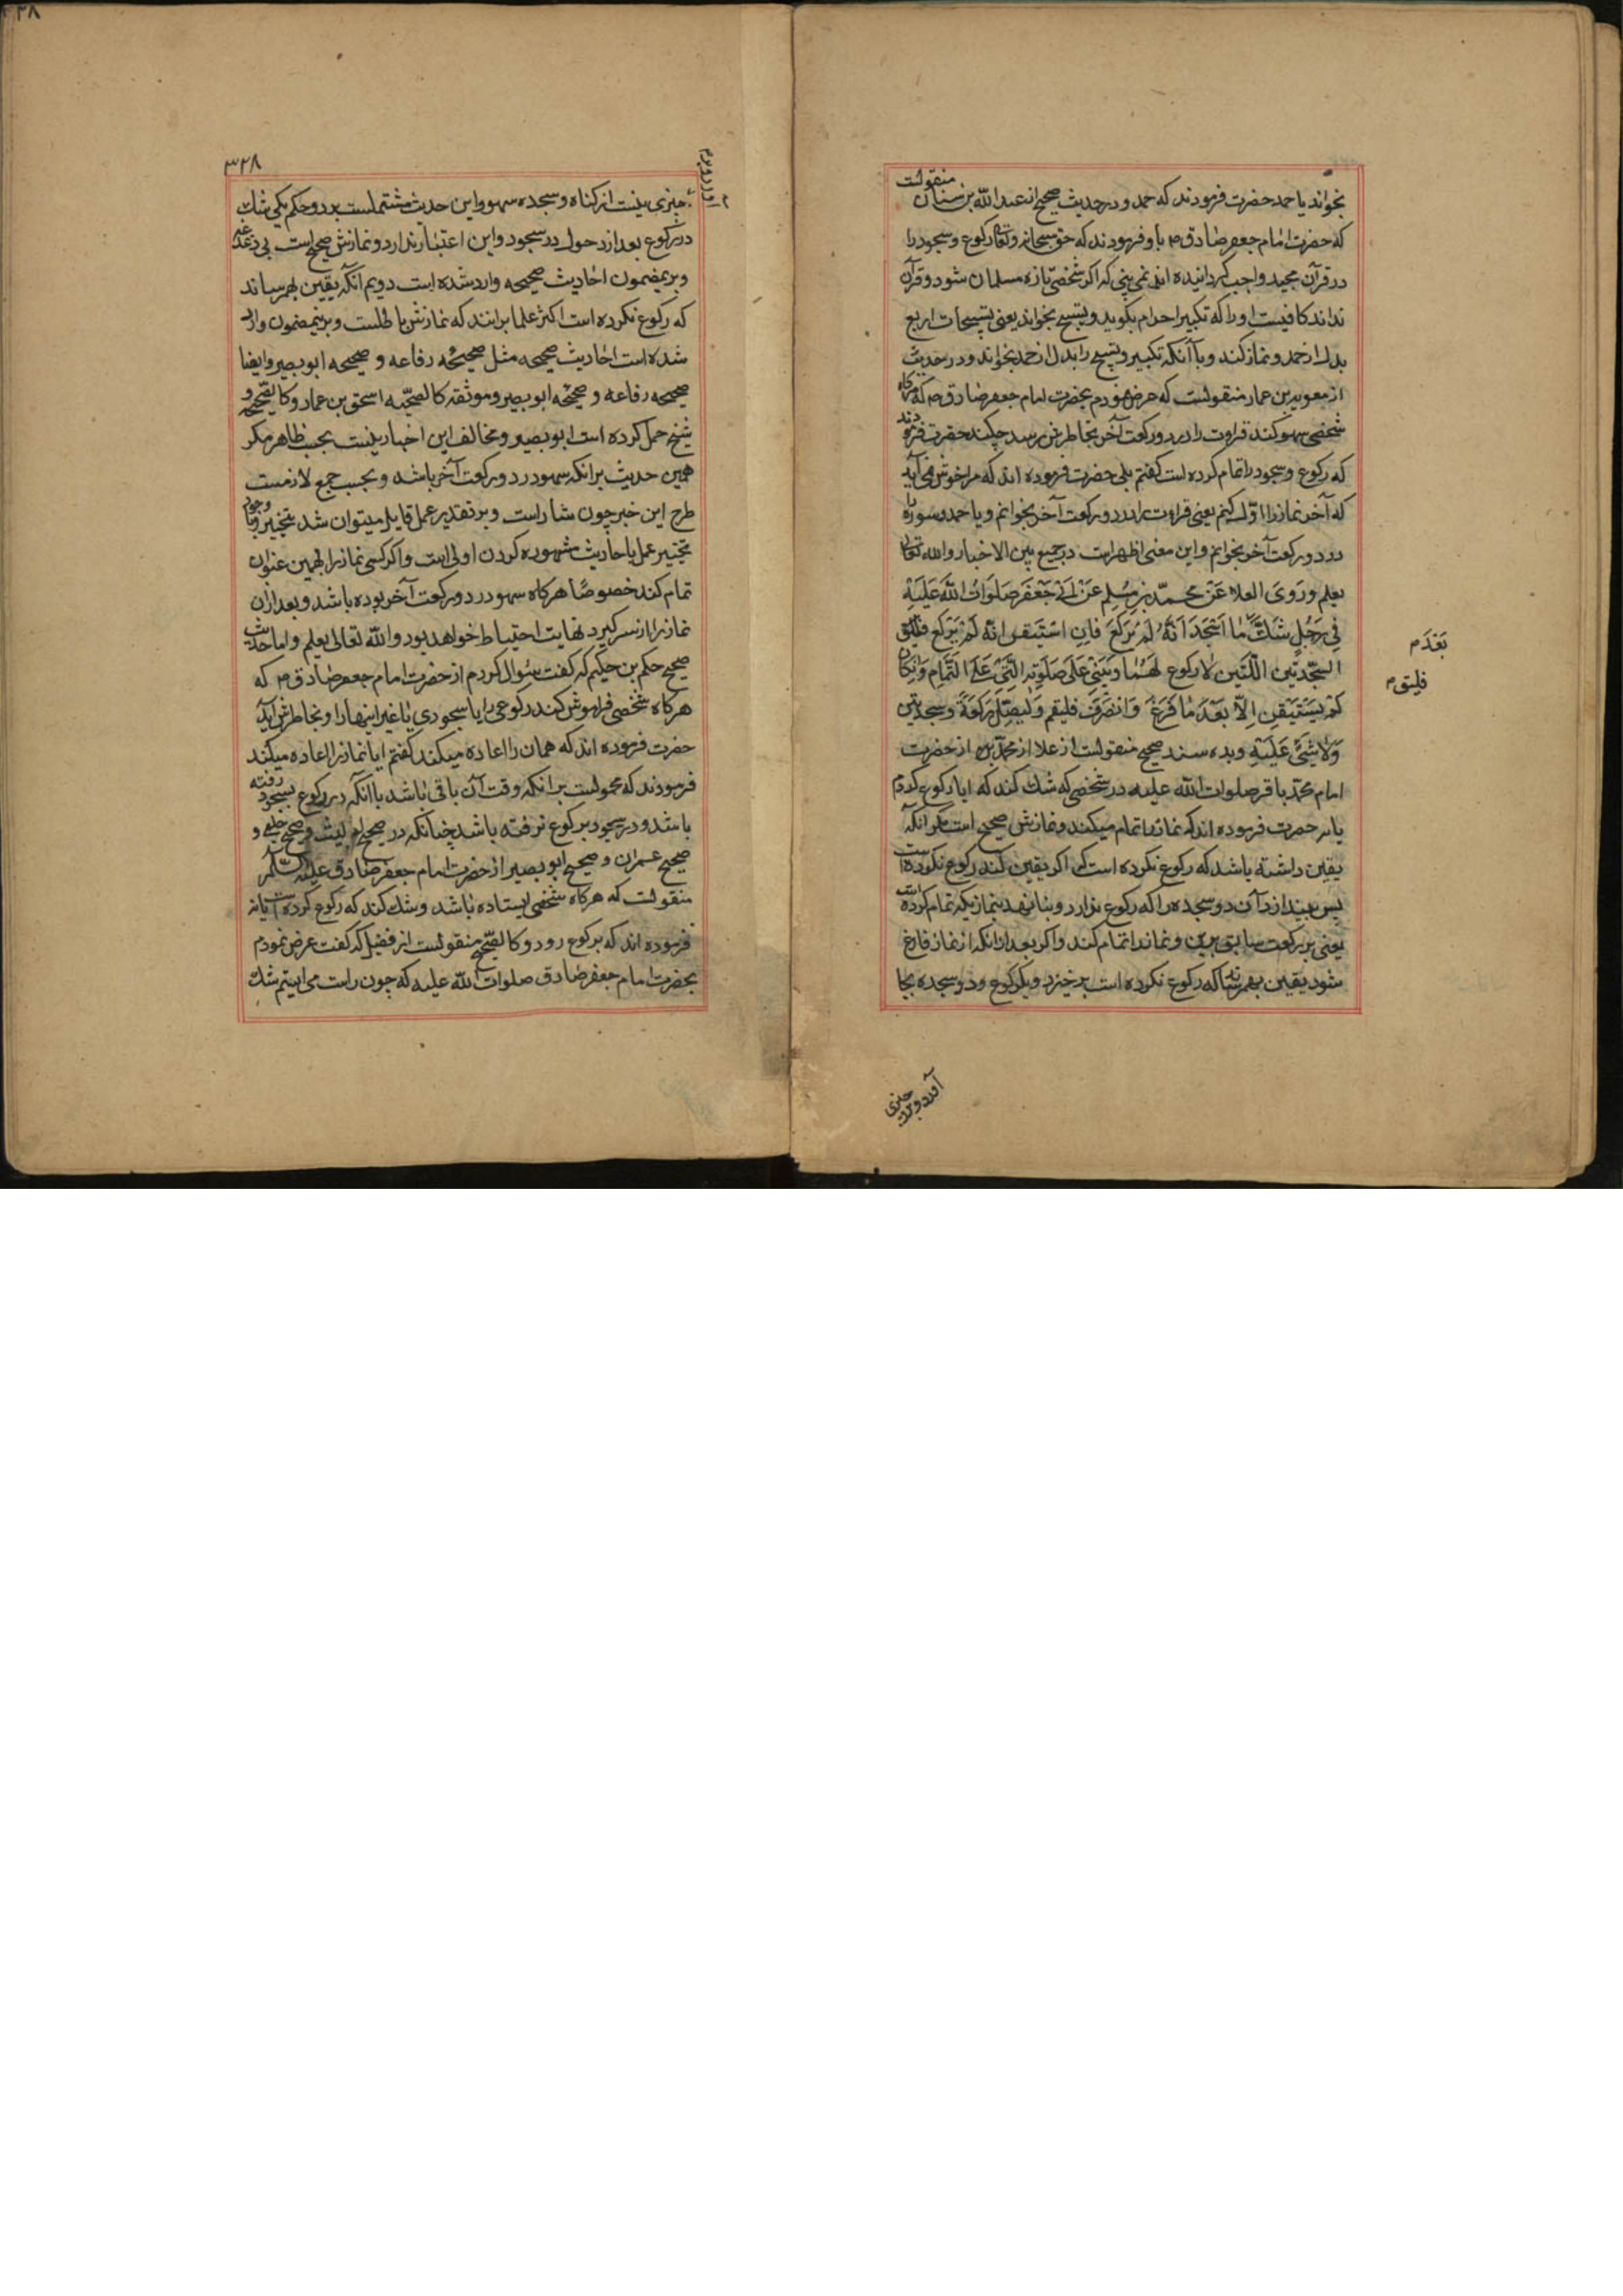 بخواند یا حمد حضرت فرمودند که حمد و در حدیث صحیح از عبد الله بن سنان منقولست
که حضرت امام جعفر صادق م باو فرمودند که حق سبحانه وتعالی رکوع و سجود را
در قرآن مجید واجب گردانیده اند نمی بینی که اگر شخصی تازه مسلمان شود و قرآن
نداند کافیست او را که تکبیر احرام بگوید و تسبیح بخواند یعنی تسبیحات اربع
بدل از حمد و نماز کند و یا آنکه تکبیر و تسبیح را بدل از حمد بخواند و در حدیث
از معویه بن عمار منقولست که عرض نمودم بحضرت امام جعفر صادق م که هرکاه
شخصی سهو کند قراءت را در دو رکعت آخر بخاطرش رسد چکند حضرت فرمودند
که رکوع و سجود را تمام کرده است گفتم بلی حضرت فرموده اند که مرا خوش نمی آید
که آخر نماز را اول کنم یعنی قراءت را در دو رکعت آخر بخوانم و یا حمد و سوره را
در دو رکعت آخر بخوانم و این معنی اظهر است در جمیع بین الاخبار والله تعالی
یعلم وَرَوَی العلاء عَنْ محمّد بن مُسْلِم عَنْ اَبی جَعْفَر صَلَوَاتُ اللّه عَلَیْهِ
فِی رَجُلٍ شَکَّ مَا اَسْجَدَ اَنَّهُ لَمْ یَرْکَعْ فَاِنِ اسْتَیْقن انّهُ لَمْ یَرْکَعْ فلیلق
السجدتین اللّتین لا رکوع لَهُمَا وَیَبْنی عَلَی صَلَوتِه الَّتی عَلَی التَّمَامِ وَاِنکَانَ
لَمْ یَسْتَیْقِن اِلّا بَعْدَ مَا فَرَغَ وَانْصَرَفَ فلیقم وَلیُصَلِّ رَکْعَةً وسجدتین
وَلَا شَیْئَ عَلَیْهِ و بده سند صحیح منقولست از علا از محمد که از حضرت
امام محمد باقر صلوات الله علیه در شخصی که شک کند که ایا رکوع کردم
یا نه حضرت فرموده اند که نماز را تمام میکند و نمازش صحیح است مگر آنکه
یقین داشته باشد که رکوع نکرده است که اگر یقین کند رکوع نکرده است
پس بیندازد آن دو سجده را که رکوع ندارد و بنا نهد بنمازیکه تمام کرده است
یعنی بر رکعت سابق برین و نماز را تمام کند و اگر بعد از آنکه از نماز فارغ
شود یقین بهم رساند که رکوع نکرده است برخیزد و یک رکوع و دو سجده بجا
بَعْدَ م
فلیلق م
آورد و برو چیزی
۳۲۸
چیزی نیست از گناه و سجده سهو و این حدیث مشتملست بر دو حکم یکی شک
در رکوع بعد از دخول در سجود و این اعتبار ندارد و نمازش صحیح است بی دغدغه
و برینمضمون احادیث صحیحه وارد شده است دویم آنکه یقین بهمرساند
که رکوع نکرده است اکثر علما برانند که نمازش باطلست و برینمضمون وارد
شده است احادیث صحیحه مثل صحیحه رفاعه و صحیحه ابو بصیر و ایضا
صحیحه رفاعه و صحیحه ابو بصیر و موثقه کالصحیحه اسحق بن عمار و کالصحیح و
شیخ حمل کرده است ابو بصیر و مخالف این اخبار نیست بحسب ظاهر مگر
همین حدیث برانکه سهو در دو رکعت آخر باشد و بحسب جمع لازمست
طرح این خبر چون شاذ است و بر تقدیر عمل قایل میتوان شد بتخییر و با وجود
تخییر عمل باحادیث مشهوره کردن اولی است و اگر کسی نماز را بهمین عنوان
تمام کند خصوصًا هرکاه سهو در دو رکعت آخر بوده باشد و بعد ازان
نماز را از سر گیرد نهایت احتیاط خواهد بود والله تعالی یعلم و اما حدیث
صحیح حکم بن حکیم که گفت سئوال کردم از حضرت امام جعفر صادق م که
هرکاه شخصی فراموش کند رکوعی را یا سجودی یا غیر اینها را و بخاطرش آید
حضرت فرموده اند که همان را اعاده میکند گفتم ایا نماز را اعاده میکند
فرمودند که محمولست برانکه وقت آن باقی باشد با آنکه در رکوع بسجود رفته
باشد و در سجود برکوع نرفته باشد چنانکه در صحیح لیث و صحیح حلبی و
صحیح عمران و صحیح ابو بصیر از حضرت امام جعفر صادق علیه السلام
منقولست که هرکاه شخصی ایستاده باشد و شک کند که رکوع کرده است یا نه
فرموده اند که برکوع رود و کالصحیح منقولست از فضیل که گفت عرض نمودم
بحضرت امام جعفر صادق صلوات الله علیه که چون راست می ایستم شک